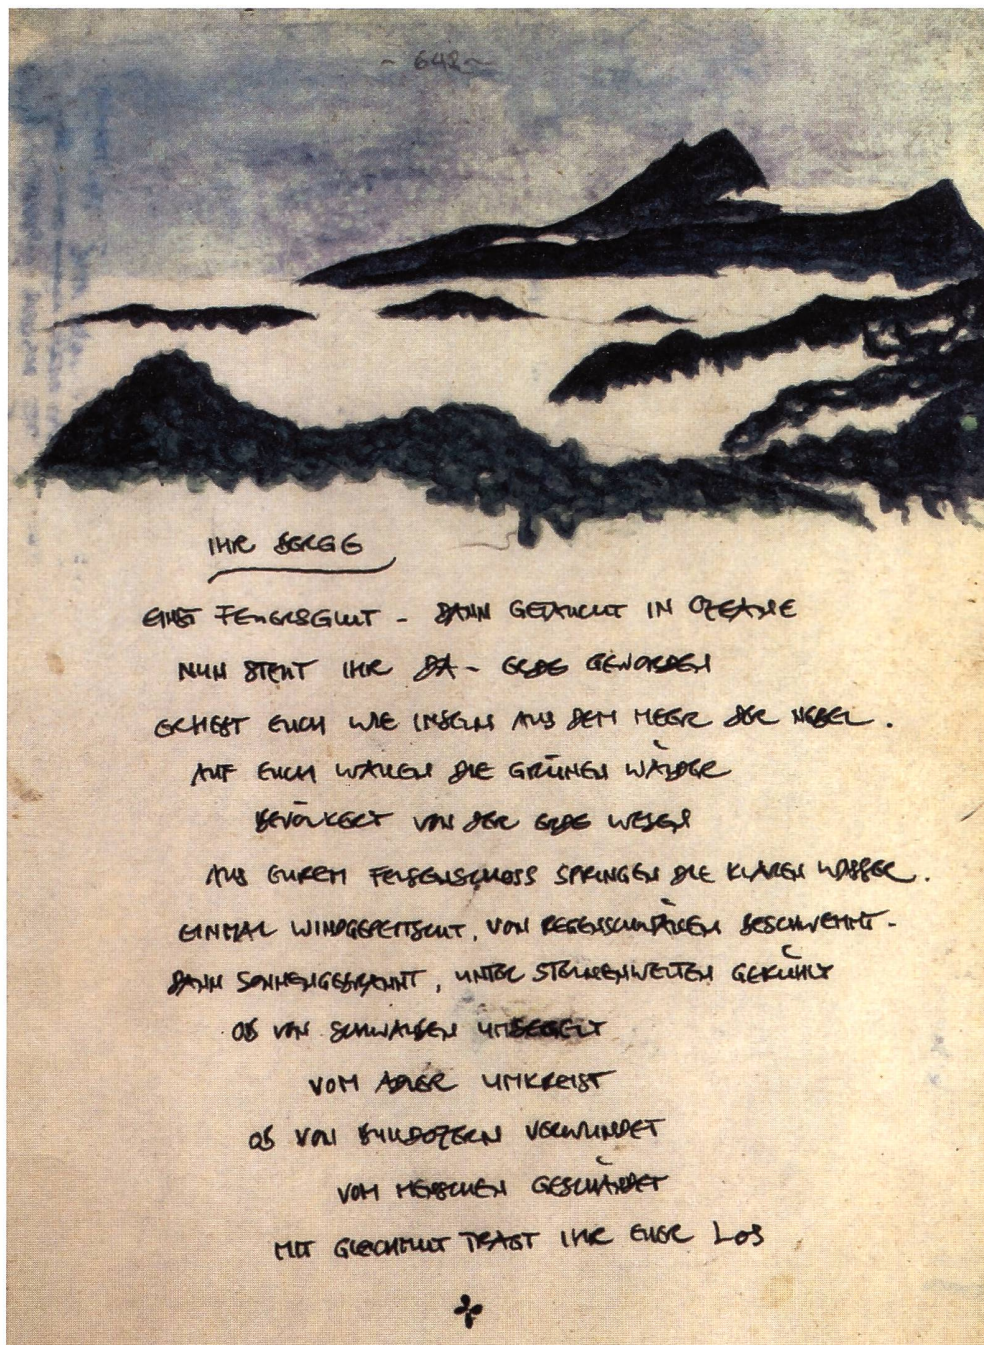 ~ 648 ~
IHR BERGE
EINST FEUERSGLUT - DANN GETAUCHT IN OZEANE
NUN STEHT IHR DA - ERDE GEWORDEN
ERHEBT EUCH WIE INSELN AUS DEM MEER DER NEBEL.
AUF EUCH WALLEN DIE GRÜNEN WÄLDER
BEVÖLKERT VON DER ERDE WESEN
AUS EUREM FELSENSCHOSS SPRINGEN DIE KLAREN WASSER.
EINMAL WINDGEPEITSCHT, VON REGENSCHWALLEN BESCHWEMMT -
DANN SONNENGEBRANNT, UNTER STERNENWELTEN GEKÜHLT
OB VON SCHWALBEN UMSEGELT
VOM ADLER UMKREIST
OB VON BULLDOZERN VERWUNDET
VOM MENSCHEN GESCHÄNDET
MIT GLEICHMUT TRAGT IHR EUER LOS